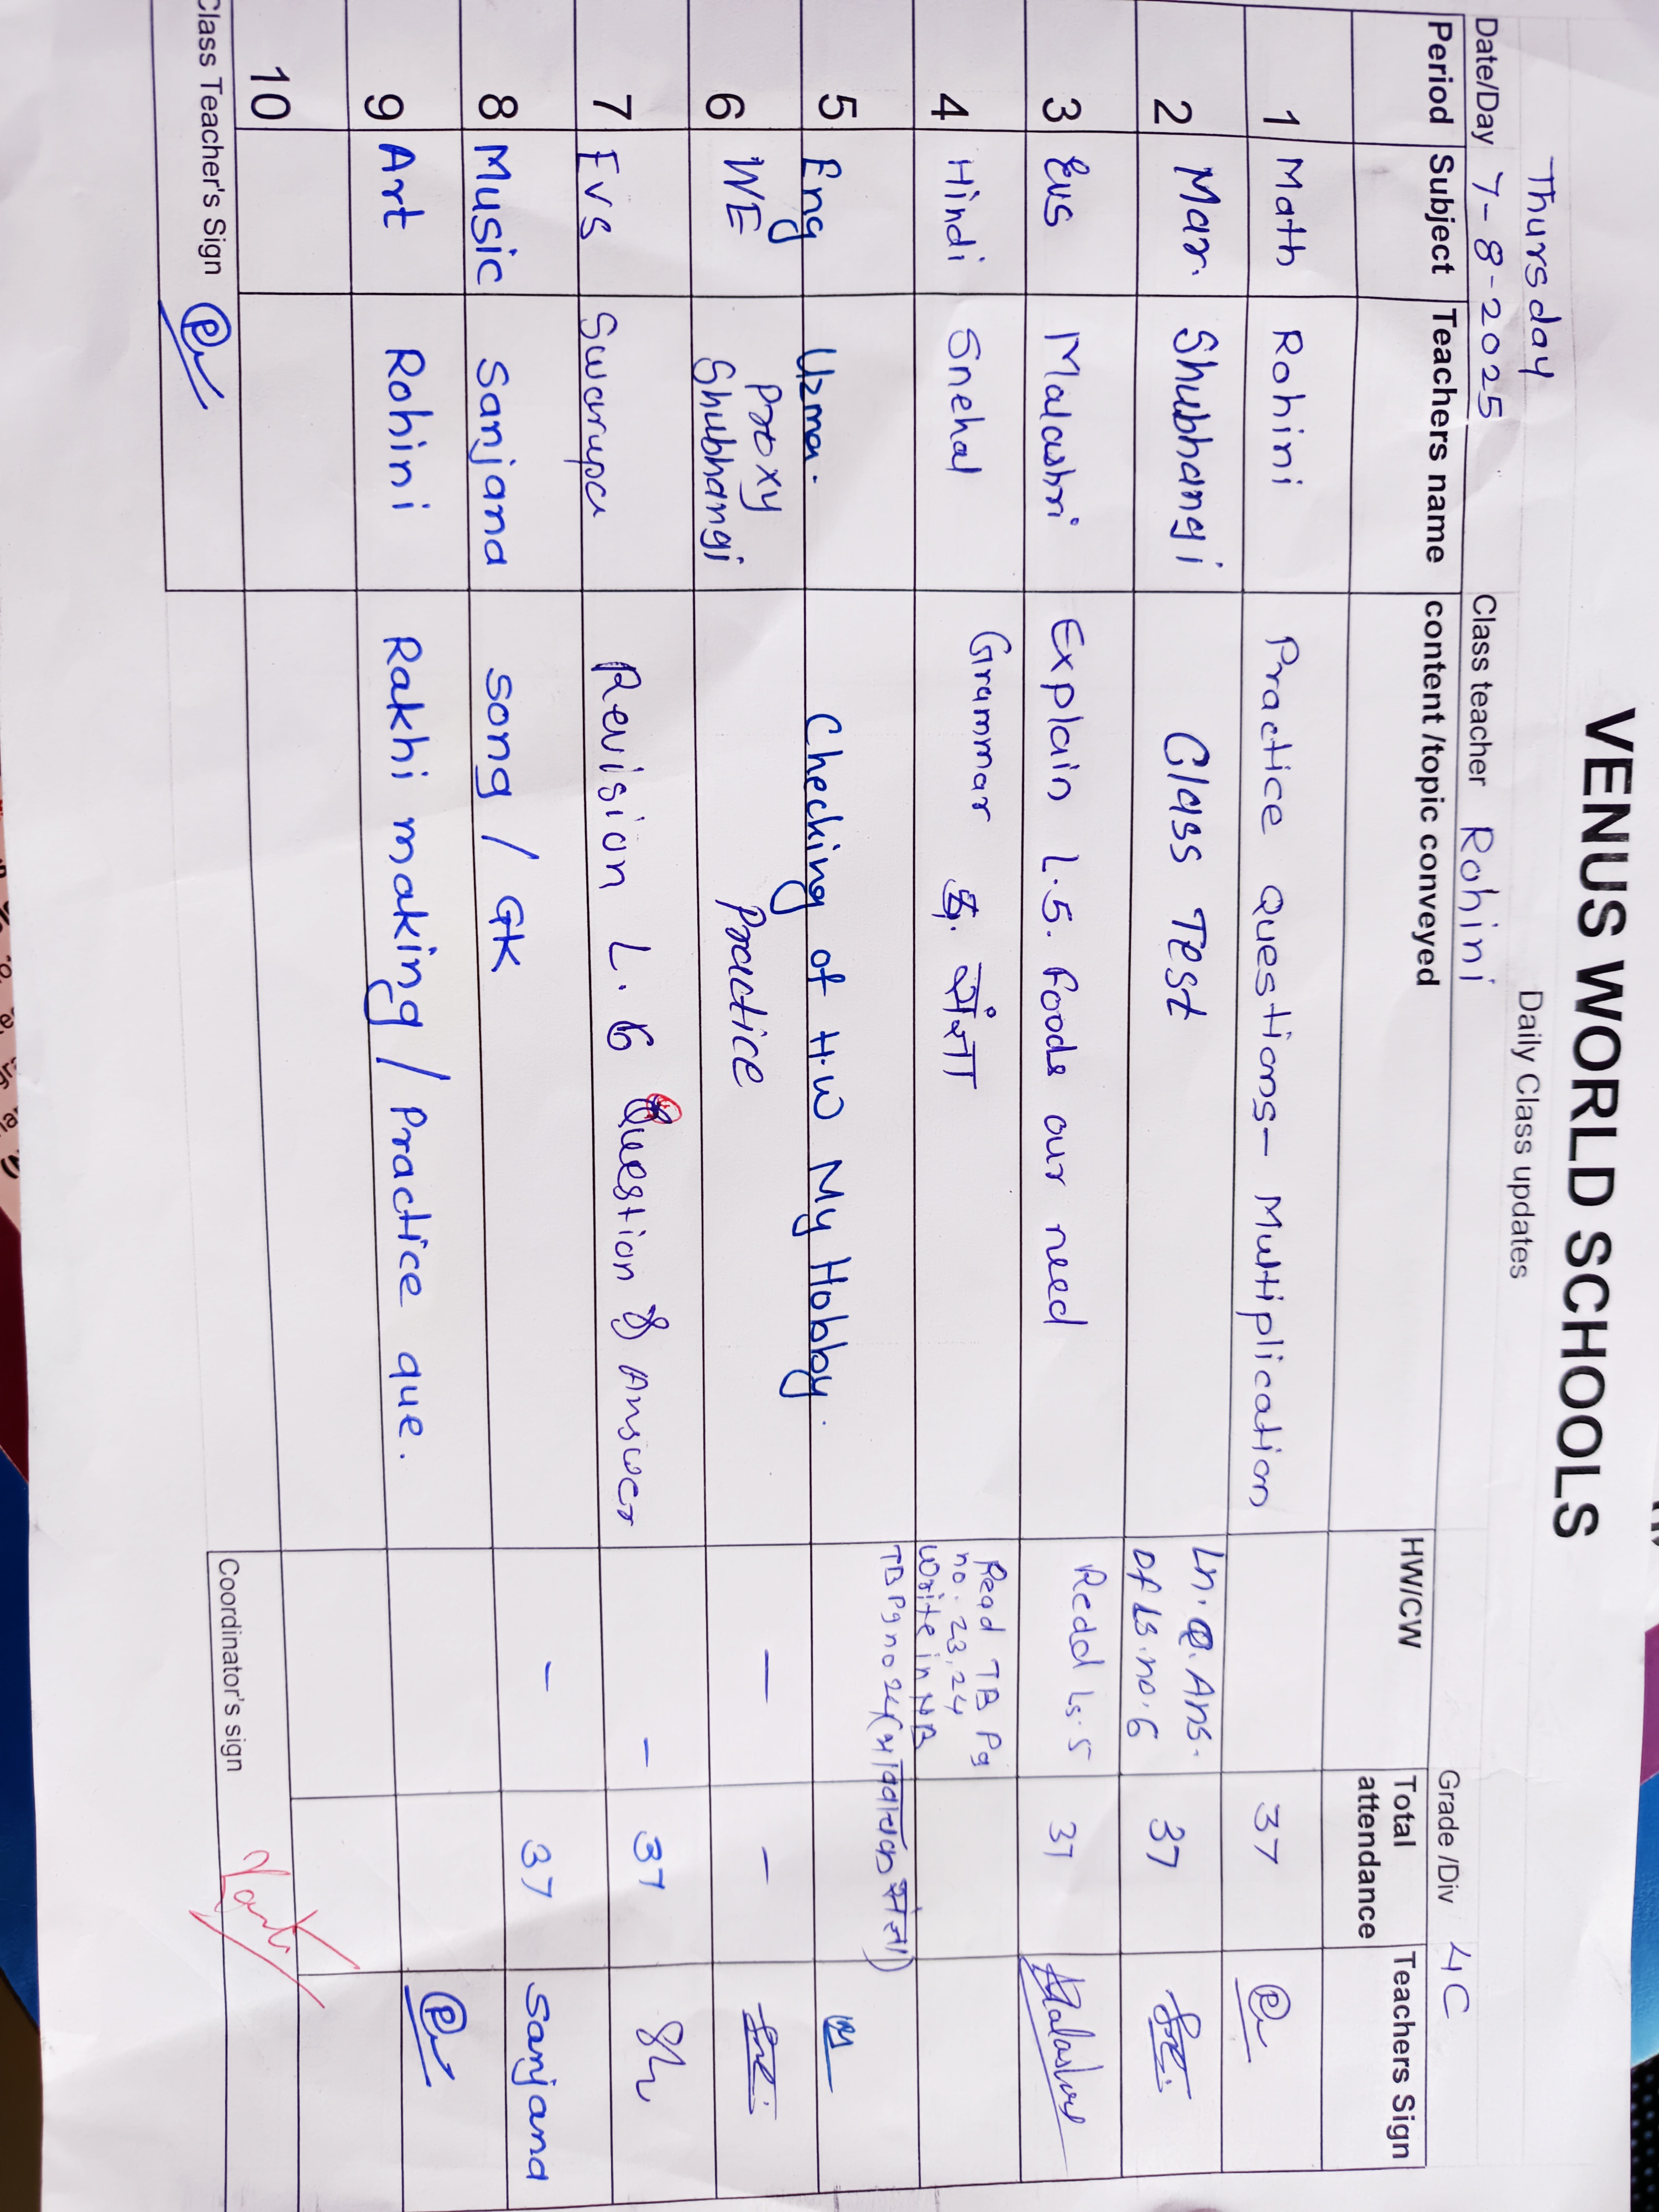 VENUS WORLD SCHOOLS
Daily Class updates
Thursday
Date/Day 7-8-2025 Class teacher Rohini Grade /Div 4C
Period Subject Teachers name content /topic conveyed HW/CW Total attendance Teachers Sign
1 Math Rohini Practice Questions- Multiplication 37
2 Mar. Shubhangi Class Test Ln. Q. Ans. of Ls. no. 6 37
3 Evs Malashri Explain L.5. foods our need Read Ls. 5 37
4 Hindi Snehal Grammar संज्ञा Read TB Pg no. 23, 24 Write in NB
TB Pg no 24 (भाववाचक संज्ञा)
5 Eng Uzma. Checking of H.W My Hobby.
6 WE Proxy Shubhangi Practice — —
7 EVS Swarupa Revision L. 6 Question & Answer - 37
8 Music Sanjana song / GK - 37 Sanjana
9 Art Rohini Rakhi making / Practice que.
10
Class Teacher's Sign Coordinator's sign